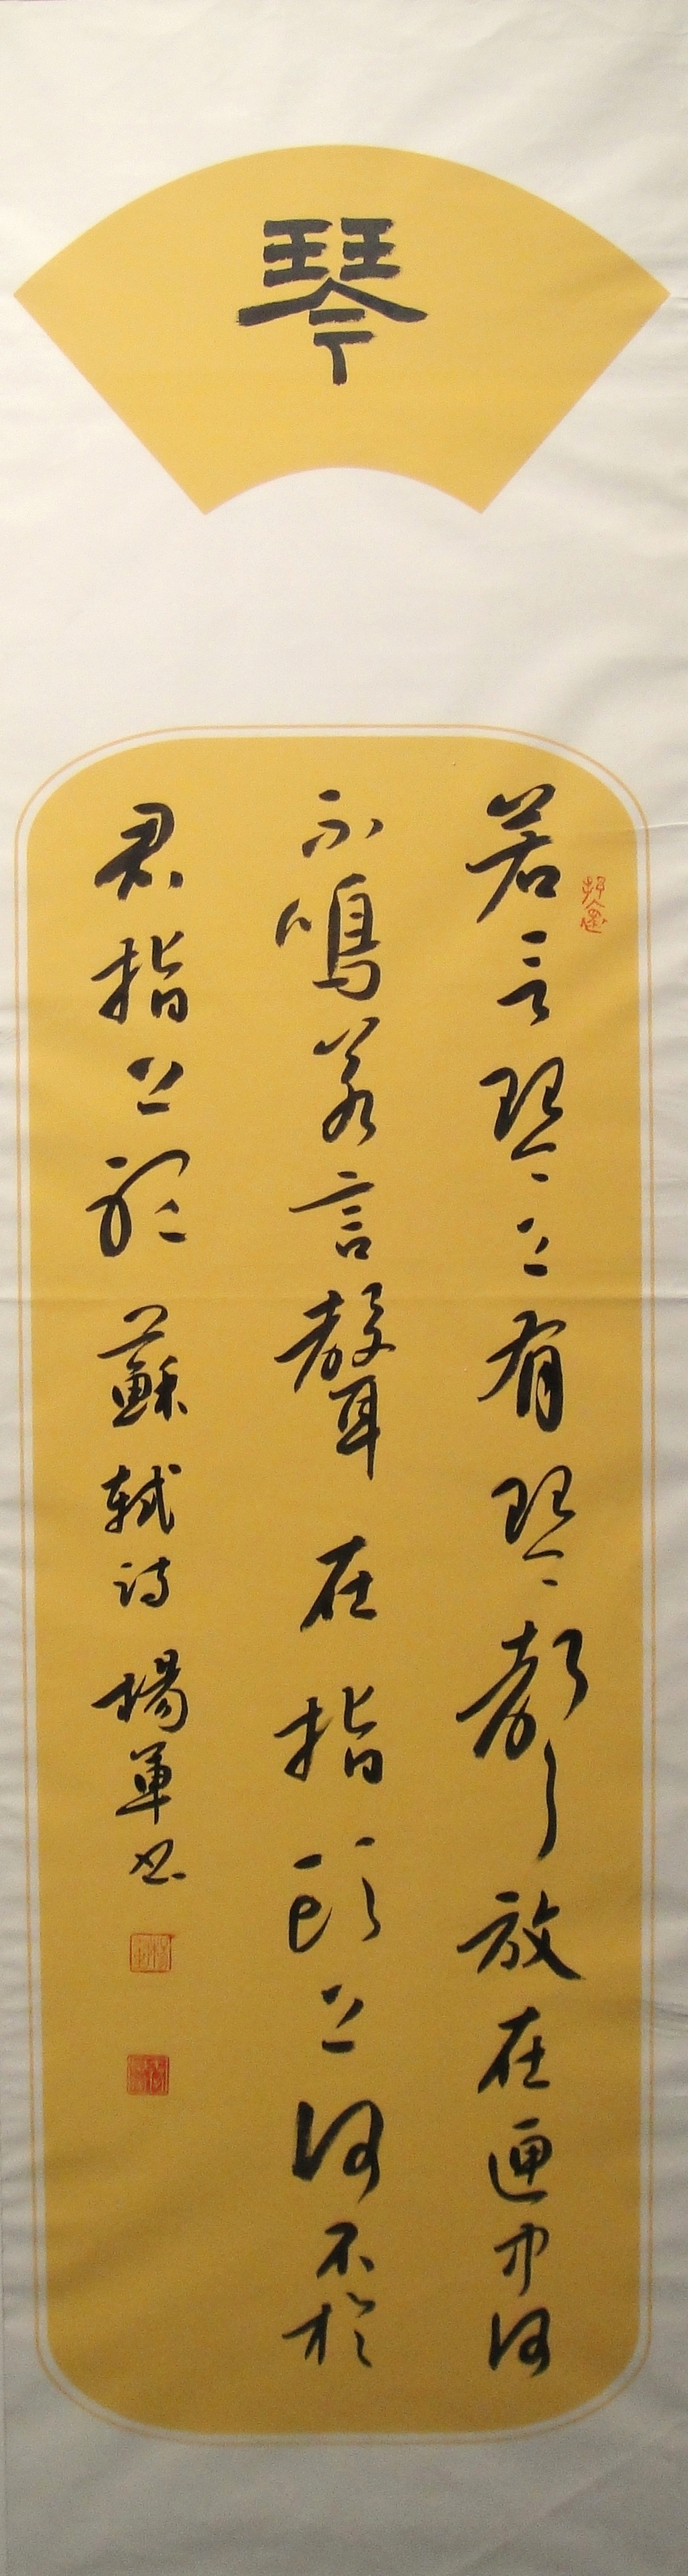 琴
若言琴上有琴聲放在匣中何
不鳴若言聲在指頭上何不於
君指上聽 蘇軾詩 楊軍书